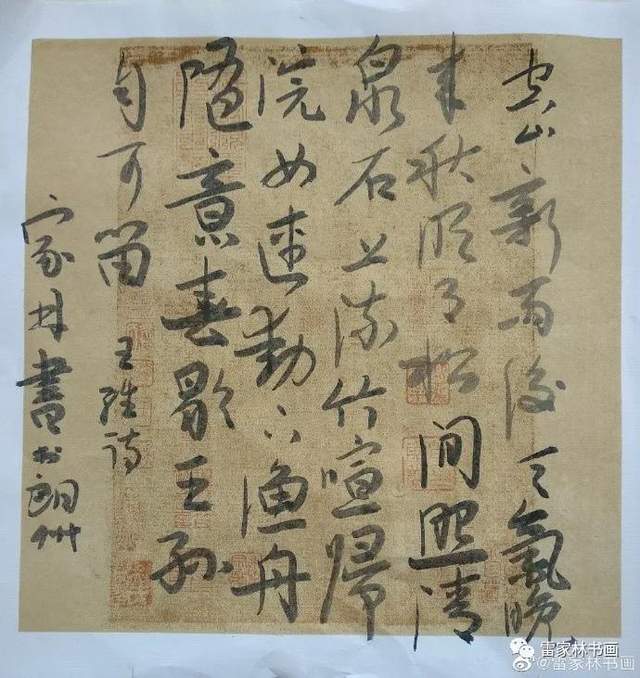 空山新雨後天氣晚
来秋明月松间照清
泉石上流竹喧歸
浣女蓮動下渔舟
随意春歇王孫
自可留
王維诗
家林書於朗州
雷家林书画
@雷家林书画